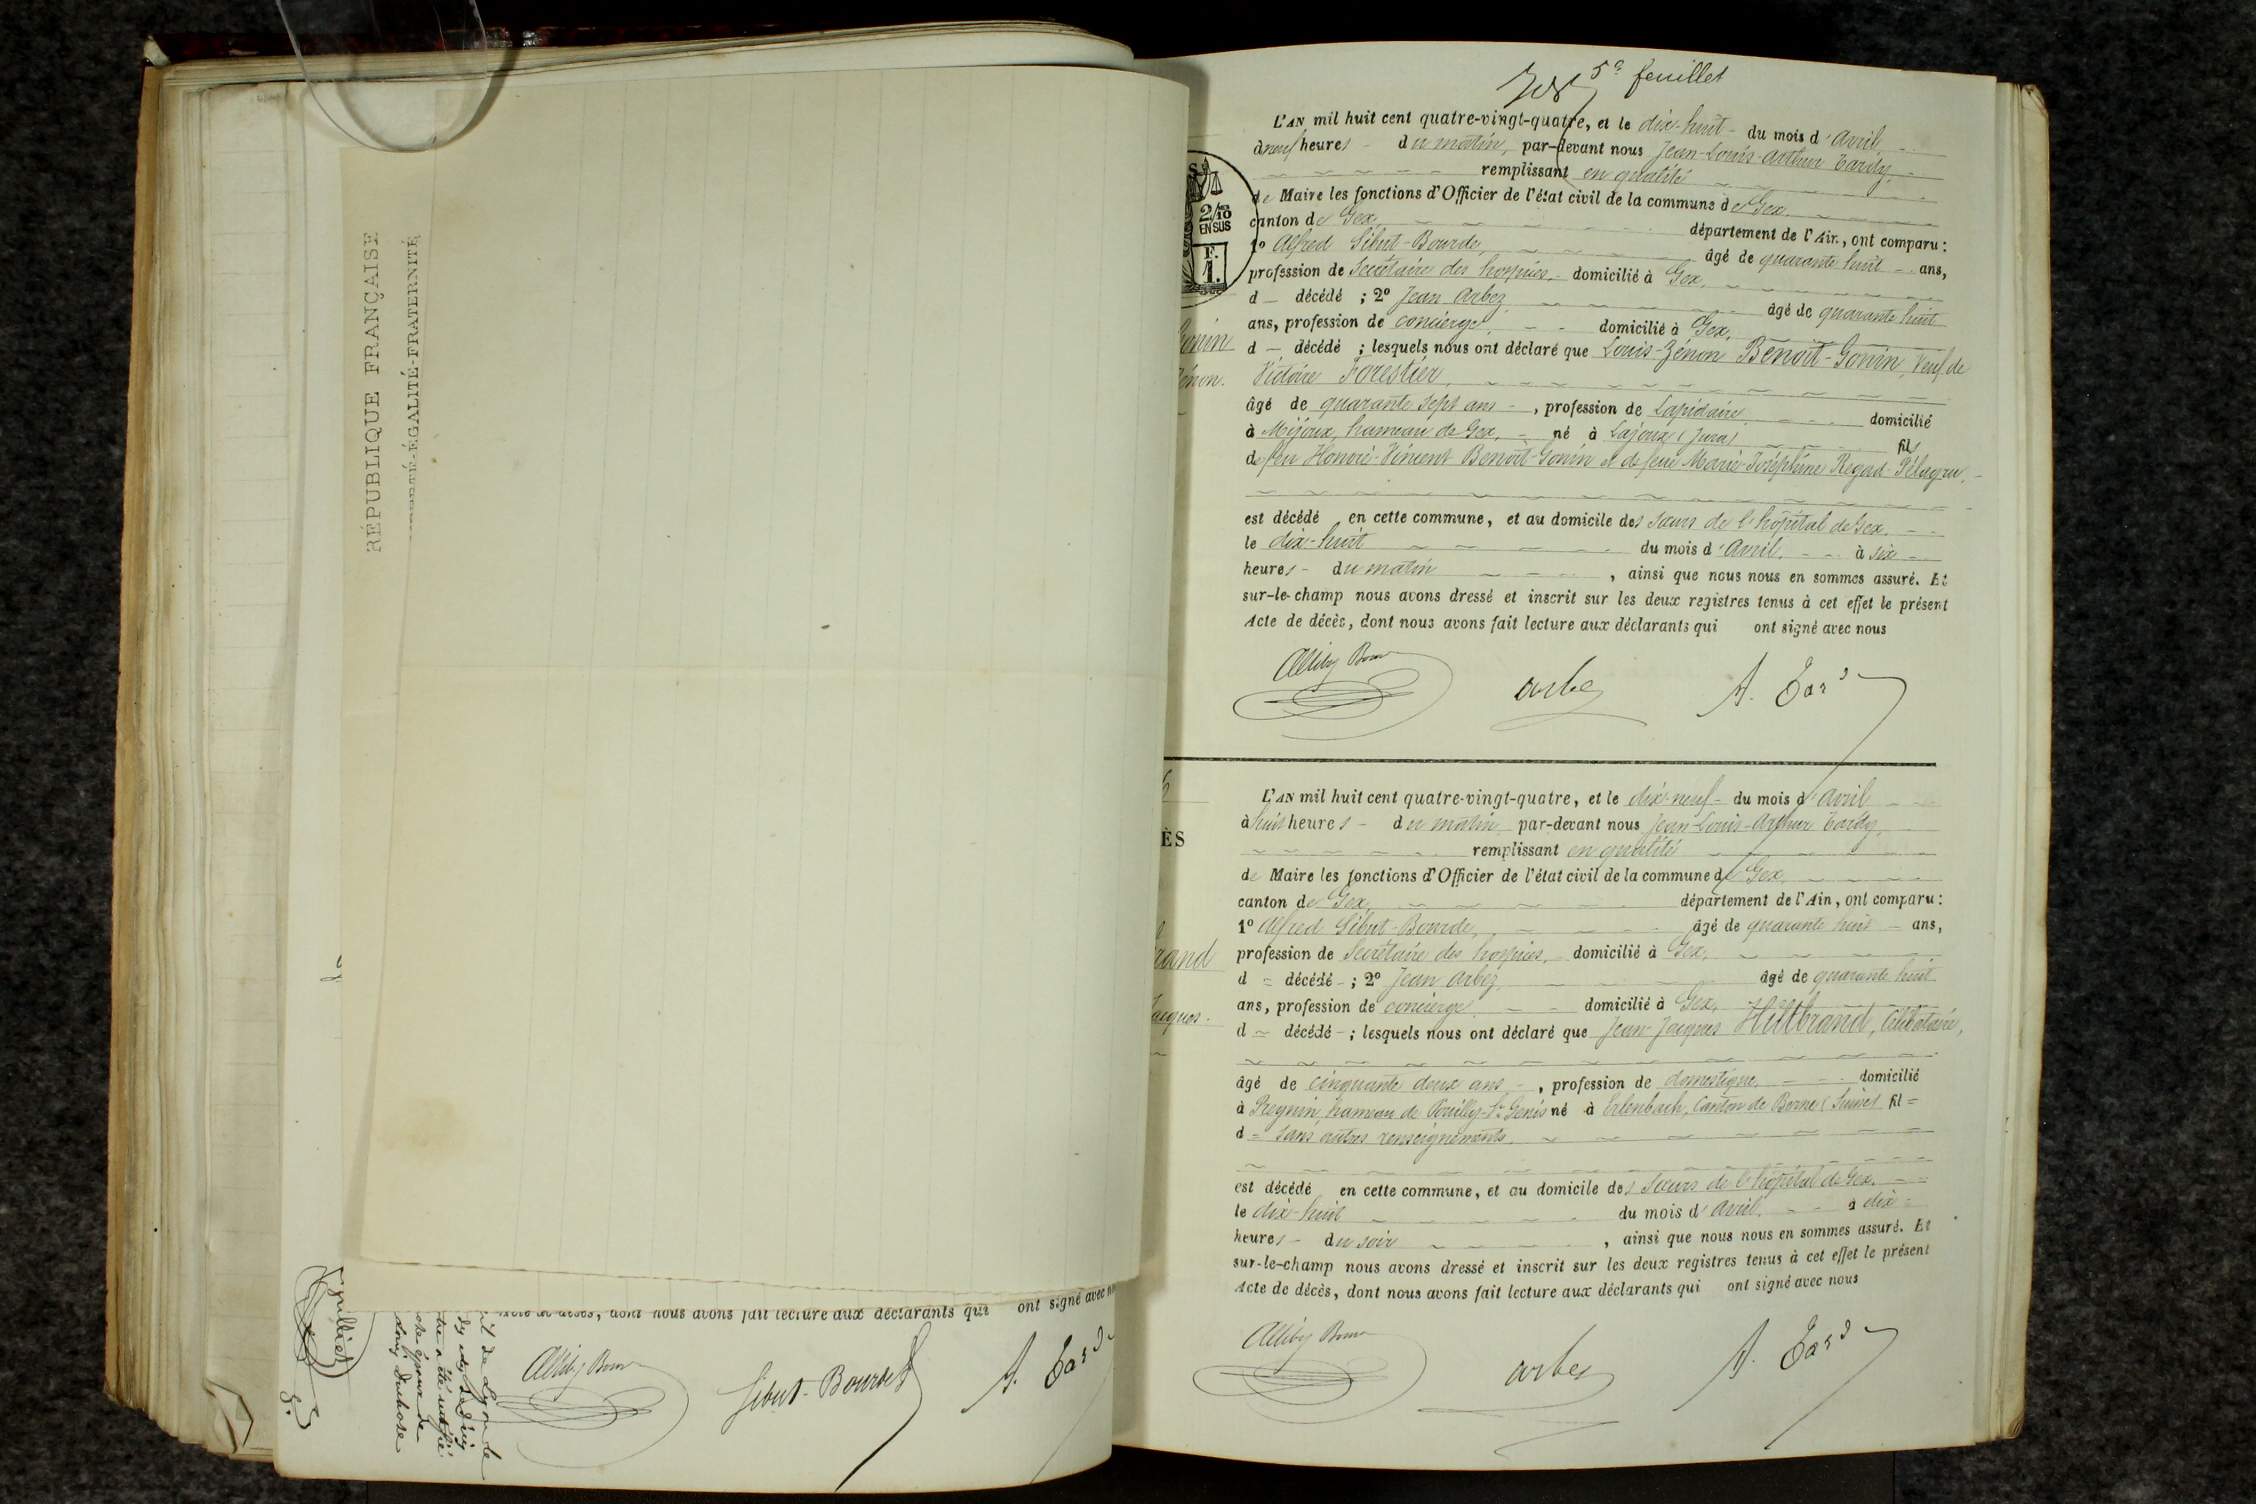 RÉPUBLIQUE FRANÇAISE
ÉGALITÉ-FRATERNITÉ
Acte de décès, dont nous avons fait lecture aux déclarants qui ont signé avec
Sibut-Bourde
A. Tardy
5e feuillet
L'AN mil huit cent quatre-vingt-quatre, et le dix-huit du mois d'avril
à neuf heures du matin, par-devant nous Jean-Louis-Arthur Tardy,
remplissant en qualité
de Maire les fonctions d'Officier de l'état civil de la commune de Gex
canton de Gex, département de l'Ain, ont comparu :
1º Alfred Sibut-Bourde, âgé de quarante huit ans,
profession de Secrétaire des hospices domicilié à Gex,
d décédé ; 2º Jean Arbez âgé de quarante huit
ans, profession de concierge, domicilié à Gex,
d décédé ; lesquels nous ont déclaré que Louis-Zénon Benoît-Gonin, Veuf de
Victoire Forestier,
âgé de quarante sept ans, profession de Lapidaire domicilié
à Mijoux, hameau de Gex, né à Lajoux (Jura) fils
de feu Honoré-Vincent Benoît-Gonin et de feue Marie-Joséphine Regad-Pélagru,
est décédé en cette commune, et au domicile des sœurs de l'hôpital de Gex,
le dix-huit du mois d'avril à six
heures du matin, ainsi que nous nous en sommes assuré. Et
sur-le-champ nous avons dressé et inscrit sur les deux registres tenus à cet effet le présent
Acte de décès, dont nous avons fait lecture aux déclarants qui ont signé avec nous
arbez
A. Tardy
2/10
EN SUS
F.
1.
Gonin
Zénon.
ÈS
brand
Jacques.
L'AN mil huit cent quatre-vingt-quatre, et le dix-neuf du mois d'avril
à huit heures du matin par-devant nous Jean-Louis-Arthur Tardy,
remplissant en qualité
de Maire les fonctions d'Officier de l'état civil de la commune de Gex
canton de Gex, département de l'Ain, ont comparu :
1º Alfred Sibut-Bourde, âgé de quarante huit ans,
profession de Secrétaire des hospices, domicilié à Gex,
d décédé ; 2º Jean Arbez, âgé de quarante huit
ans, profession de concierge domicilié à Gex,
d décédé ; lesquels nous ont déclaré que Jean-Jacques Hiltbrand, Célibataire,
âgé de cinquante deux ans, profession de domestique, domicilié
à Pregnin, hameau de Pouilly-St Genis né à Erlenbach, Canton de Berne (Suisse) fil
d sans autres renseignements.
est décédé en cette commune, et au domicile des sœurs de l'hôpital de Gex,
le dix-huit du mois d'avril à dix
heures du soir, ainsi que nous nous en sommes assuré. Et
sur-le-champ nous avons dressé et inscrit sur les deux registres tenus à cet effet le présent
Acte de décès, dont nous avons fait lecture aux déclarants qui ont signé avec nous
arbez
A. Tardy